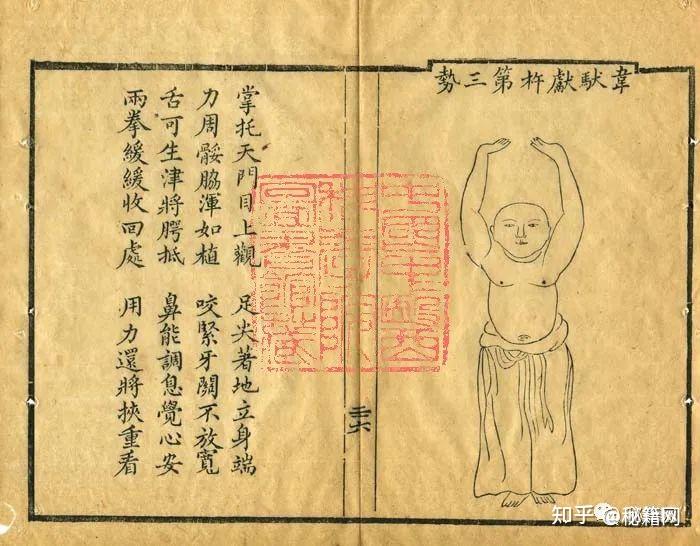 韋馱獻杵第三勢
掌托天門目上觀 足尖著地立身端
力周骽脇渾如植 咬緊牙關不放寬
舌可生津將腭抵 鼻能調息覺心安
兩拳緩緩收回處 用力還將挾重看
知乎 @秘籍网